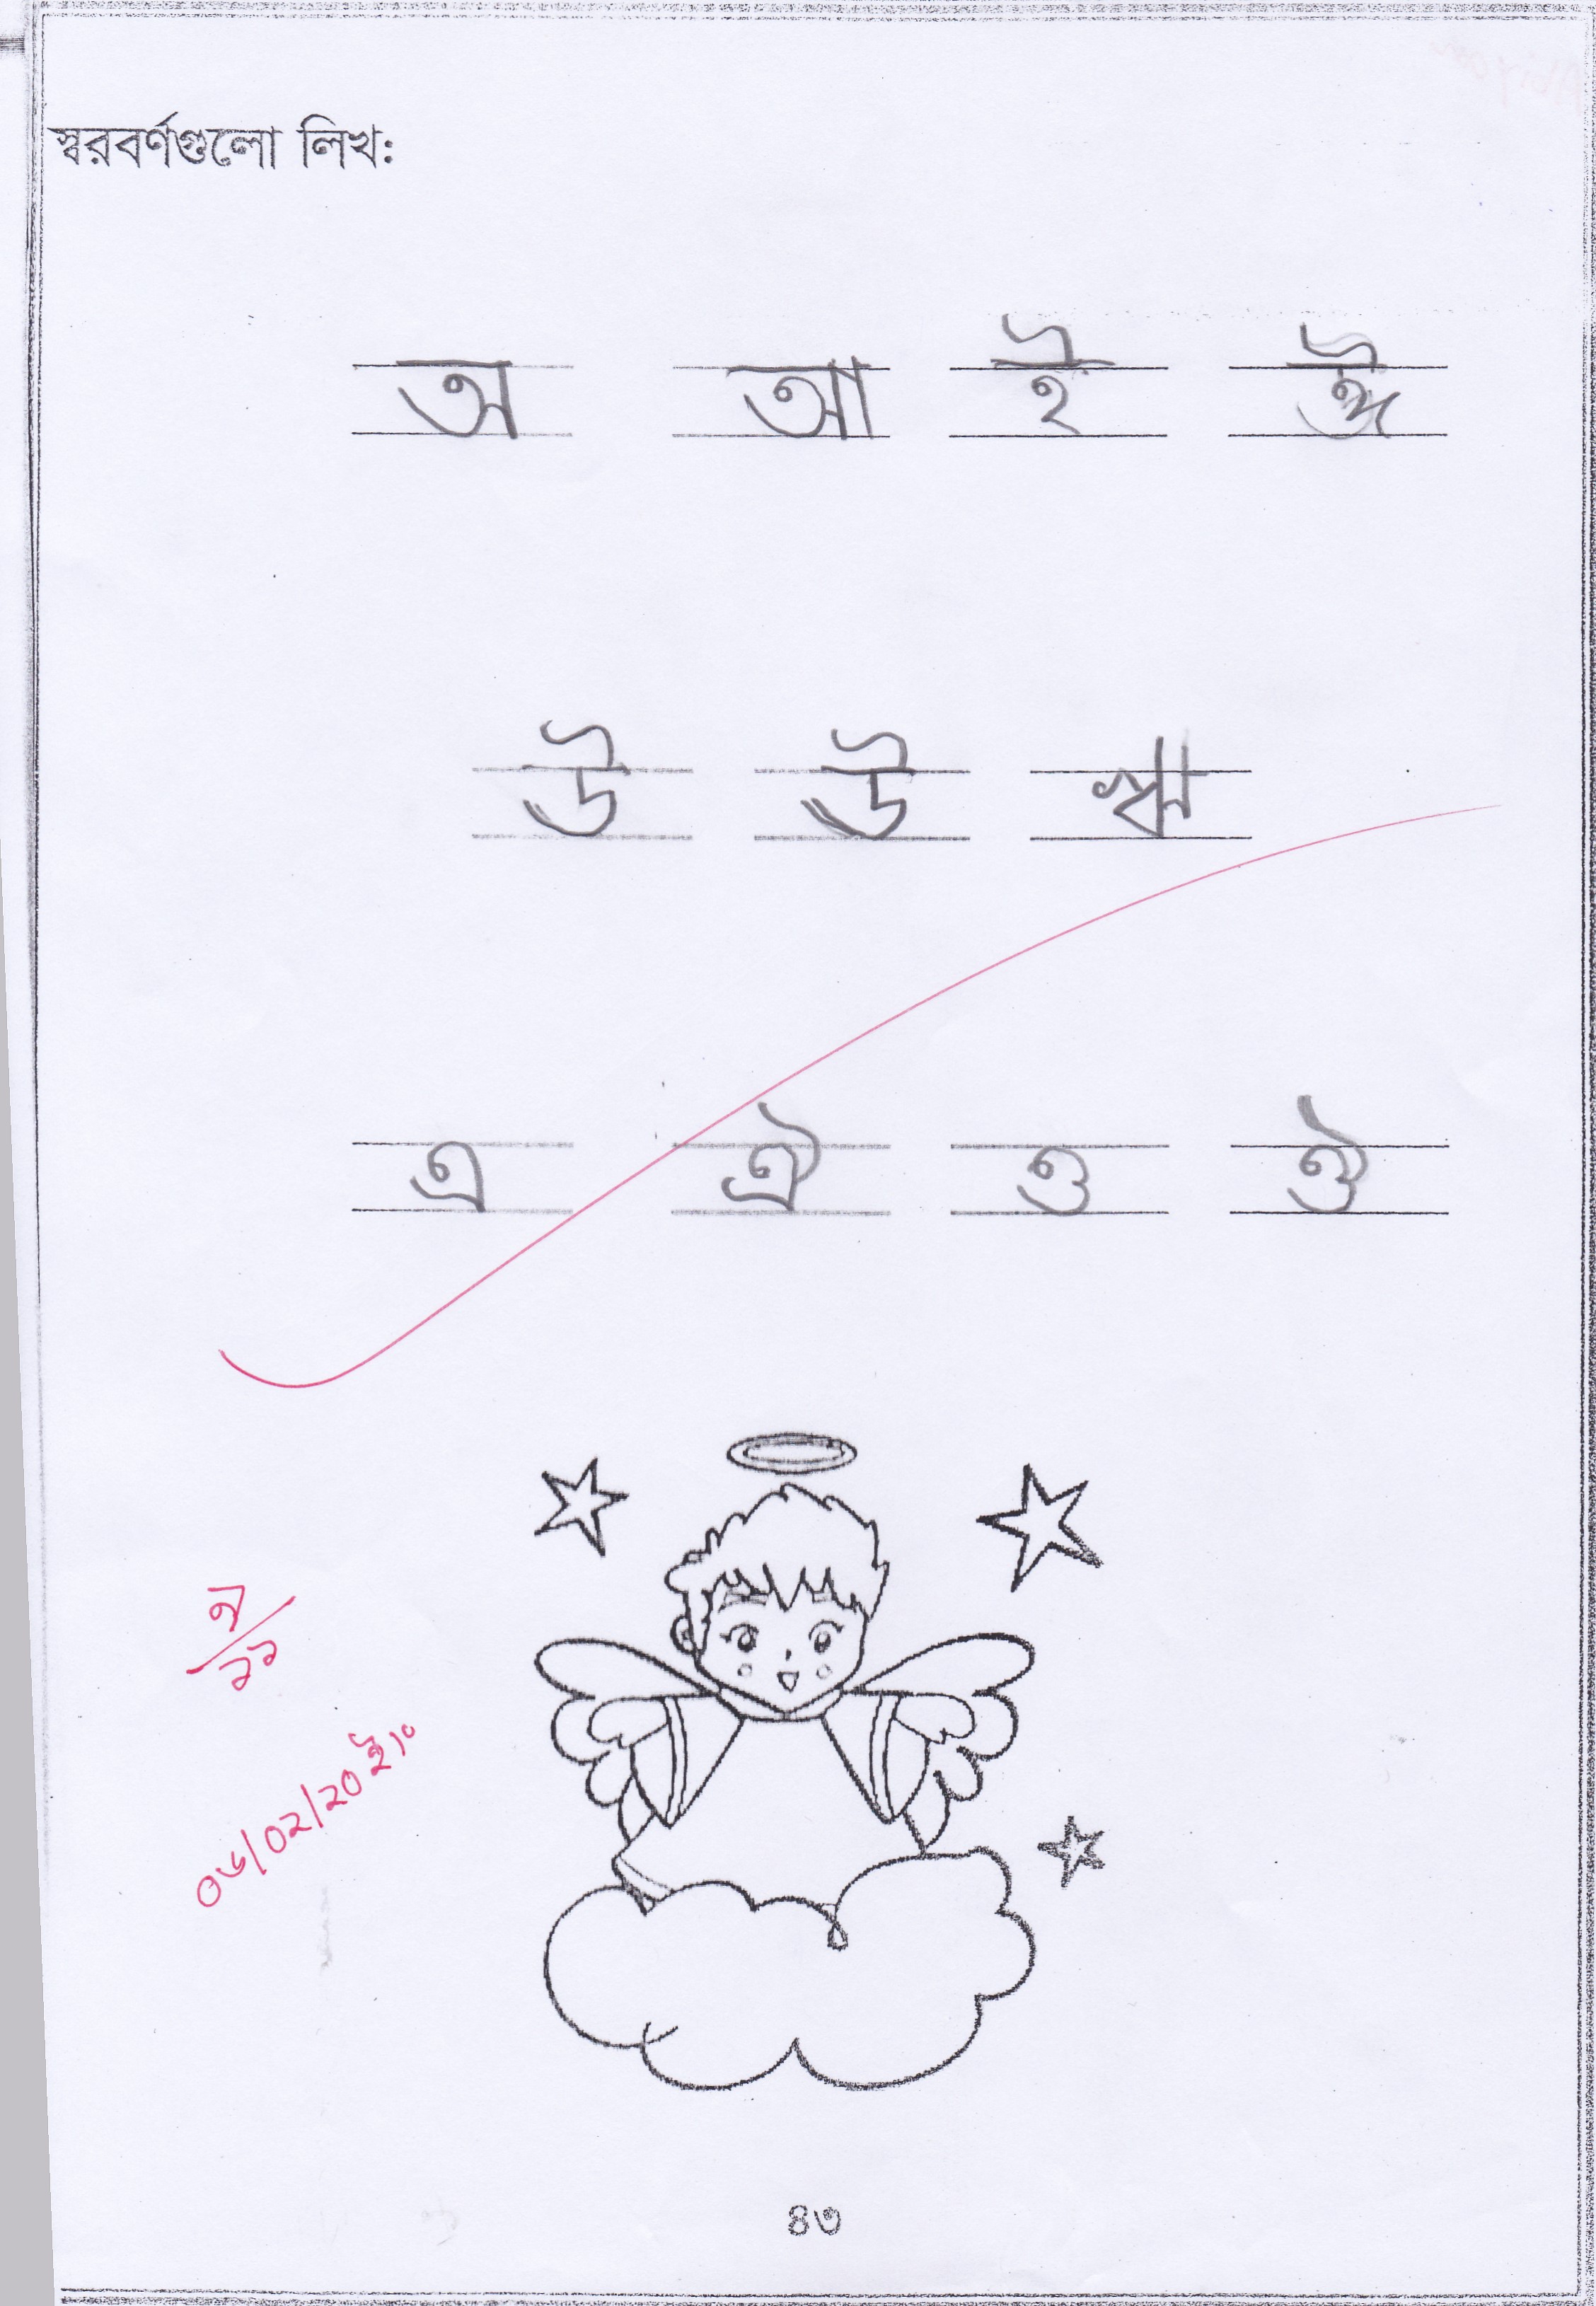 স্বরবর্ণগুলো লিখ:
অ আ ই ঈ
উ উ ঋ
এ ঐ ও ঔ
১১
০৬/০২/২০ইং
৪৩